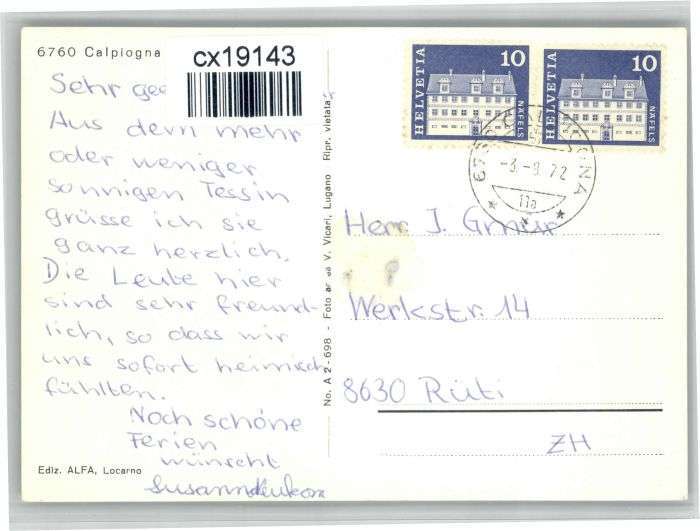 6760 Calpiogna
cx19143
Sehr gee
Aus dem mehr
oder weniger
sonnigen Tessin
grüsse ich sie
ganz herzlich.
Die Leute hier
sind sehr freund-
lich, so dass wir
uns sofort heimisch
fühlten.
Noch schöne
Ferien
wünscht
Ediz. ALFA, Locarno
No. A 2-698 - Foto V. Vicari, Lugano Ripr. vietata
HELVETIA
10
NÄFELS
HELVETIA
10
NÄFELS
-3.-9.72
11a
Herr J. Gmür
Werkstr. 14
8630 Rüti
ZH